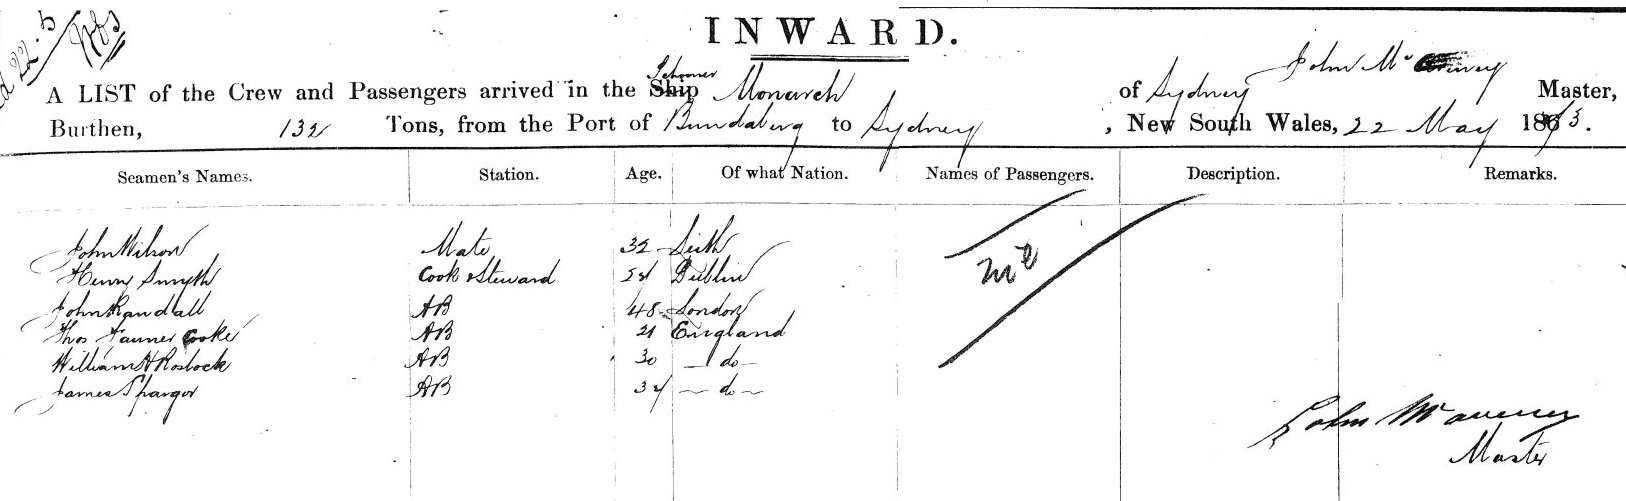 22.5
INWARD.
A LIST of the Crew and Passengers arrived in the Ship Schooner Monarch of Sydney John Mc Master,
Burthen, 132 Tons, from the Port of Bundaberg to Sydney, New South Wales, 22 May 1873.
Seamen's Names. Station. Age. Of what Nation. Names of Passengers. Description. Remarks.
John Wilson Mate 32 Leith
Henry Smyth Cook & Steward Dublin
John Randall AB 48 London
Thos Cooke AB 21 England
William H Rostock AB 30 – do –
James Spargo AB – do –
Nil
John
Master